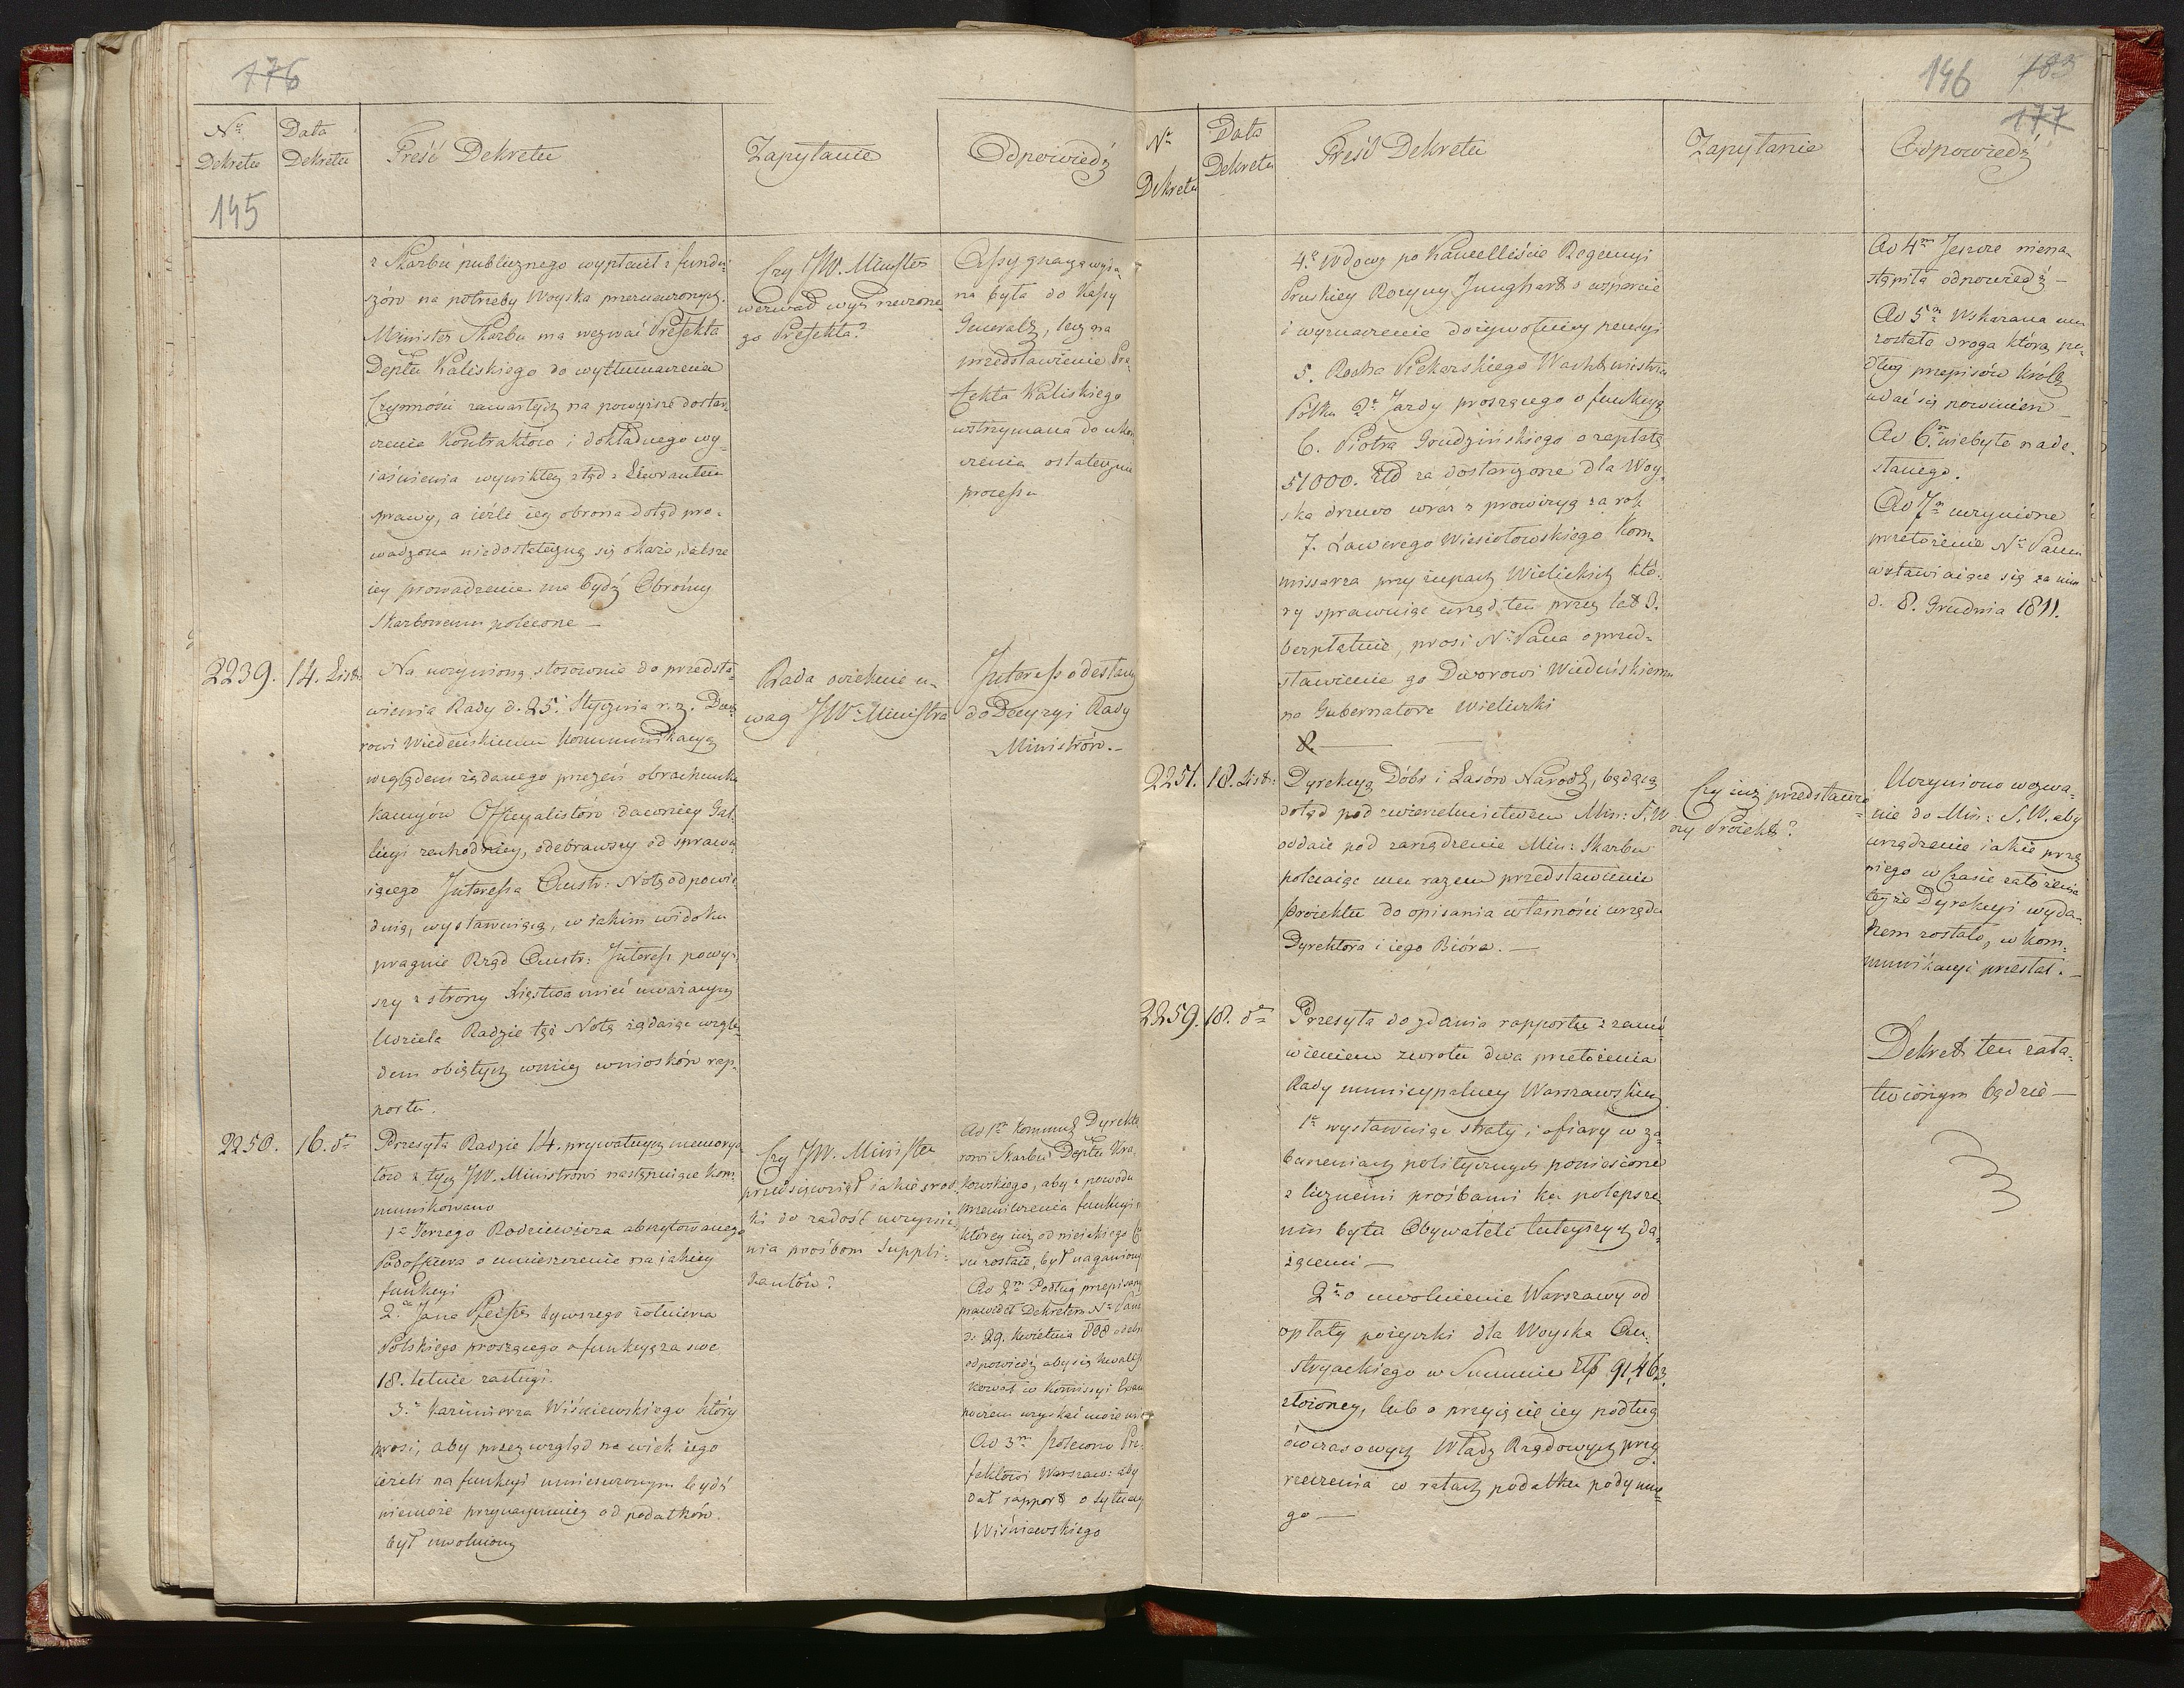 176
Nº Dekretu
Data Dekretu
Treść Dekretu
Zapytanie
Odpowiedź
145
z Skarbu publicznego wypłacił z fundu-
szów na potrzeby Woyska przeznaczonych.
Minister Skarbu ma wezwać Prefekta
Deptu Kaliskiego do wytłumaczenia
Czynności zawartych na powyższe dostar-
czenia Kontraktów i dokładnego wy-
iaśnienia wynikłey ztąd z Liwrantem
sprawy, a ieżli iey obrona dotąd pro-
wadzona niedostateczną się okaże, dalsze
iey prowadzenie ma bydź Obrońcy
Skarbowemu polecone —
Czy JW. Minister
wezwał wyż rzeczone-
go Prefekta?
Assygnacya wyda-
na była do Kassy
Generalney, lecz na
przedstawienie Pre-
fekta Kaliskiego
wstrzymana do ukoń-
czenia ostateczne
processu
2239.
14. Listo:
Na uczynioną stosownie do przedsta-
wienia Rady d. 25. Stycznia r. z. Dwo-
rowi Wiedeńskiemu Kommunikacyą
względem żądanego przezeń obrachunku
Kaucyów Officyalistów dawniey Gal-
licyi zachodniey, odebrawszy od sprawu-
iącego Interessa Austr: Notę odpowie-
dnią, wystawuiącą, w iakim widoku
pragnie Rząd Austr: Interess powy-
szy z strony Xięstwa mieć uważanym
Udziela Radzie tęż Notę żądaiąc wzglę-
dem obiętych w niey wniosków rap-
portu.
Rada oczekuie u-
wag JWº Ministra
Interess odesłany
do Decyzyi Rady
Ministrów. —
2250.
16. dº
Przesyła Radzie 14. prywatnych memorya-
łów z tych JW. Ministrowi następuiące kom-
munikowano
1º Jerzego Rodziewicza abszytowanego
Podofficera o umieszczenie na iakiey
funkcyi
2º Jana Pfeiffer bywszego żołnierza
Polskiego proszącego o funkcyą za swe
18. letnie zasługi.
3º Kazimierza Wiśniewskiego który
prosi, aby przez wzgląd na wiek iego
ieżeli na funkcyi umieszczonym bydź
niemoże przynaymniey od podatków
był uwolniony
Czy JW. Minister
przedsięwziął iakie środ-
ki do zadość uczynie-
nia prośbom Suppli-
kantów?
Ad 1m Kommuk Dyrekto-
rowi Skarbu Deptu Kra-
kowskiego, aby z powodu
funkcyi
którey iuż od nieiakiego
su zostaie, był nagrodzony
Ad 2m Podług przepisany
prawideł Dekretem Nº Pana
d. 29. Kwietnia 808 odebr
odpowiedź aby się kwalifi-
kował w Kommissyi Exam
poczem uzyskać może
Ad 3m Polecono Pre-
fektowi Warszaw: aby
dał rapport o sytuacyi
Wiśniewskiego
146 183
177
Nº Dekretu
Data Dekretu
Treść Dekretu
Zapytanie
Odpowiedź
4º Wdowy po Kancelliście Regencyi
Pruskiey Rozyny Junghart o wsparcie
i wyznaczenie dożywotniey pensyi
5. Rocha Piekarskiego Wachtmistrza
Półku 2º Jazdy proszącego o funkcyą
6. Piotra Grudzińskiego o zapłatę
51000. Złd za dostarczone dla Woy-
ska drzewo wraz z prowizyą za rok
7. Xawerego Wiesiołowskiego Kom-
missarza przy żupach Wielickich któ-
ry sprawuiąc urząd ten przez lat 3.
bezpłatnie, prosi Nº Pana o przed-
stawienie go Dworowi Wiedeńskiemu
na Gubernatora Wieliczki
8. —
Ad 4m Jeszcze niena-
stąpiła odpowiedź —
Ad 5m Wskazana mu
została droga którą po-
dług przepisów Królew
udać się powinien —
Ad 6m niebyło nade-
słanego.
Ad 7m uczynione
przełożenie Nº Panu
wstawiaiące się za nim
d. 8. Grudnia 1811.
2251.
18. Listo:
Dyrekcyą Dóbr i Lasów Narodk, będącą
dotąd pod zwierzchnictwem Min: S. W.
oddaie pod zarządzenie Min: Skarbu
polecaiąc mu razem przedstawienie
Proiektu do opisania własności urzędu
Dyrektora i iego Bióra. —
Czy iuż przedstawio-
ny Proiekt?
Uczyniono wezwa-
nie do Min: S. W. aby
urządzenie iakie przez
niego w czasie założenia
teyże Dyrekcyi wyda-
nem zostało, w Kom-
munikacyi przesłał. —
2259.
18. dº
Przesyła do zdania rapportu z zamó-
wieniem zwrotu dwa przełożenia
Rady municypalney Warszawskiey
1º wystawuiące straty i ofiary w za-
burzeniach politycznych poniesione
z licznemi prośbami ku polepsze-
niu bytu Obywateli tuteyszych dą-
żącemi —
2º o uwolnienie Warszawy od
opłaty pożyczki dla Woyska Au-
stryackiego w Summie Złp 91,463.
złożoney, lub o przyięcie iey podług
ówczasowych Władz Rządowych przy-
rzeczenia w ratach podatku podymne-
go —
Dekret ten zała-
twionym będzie —